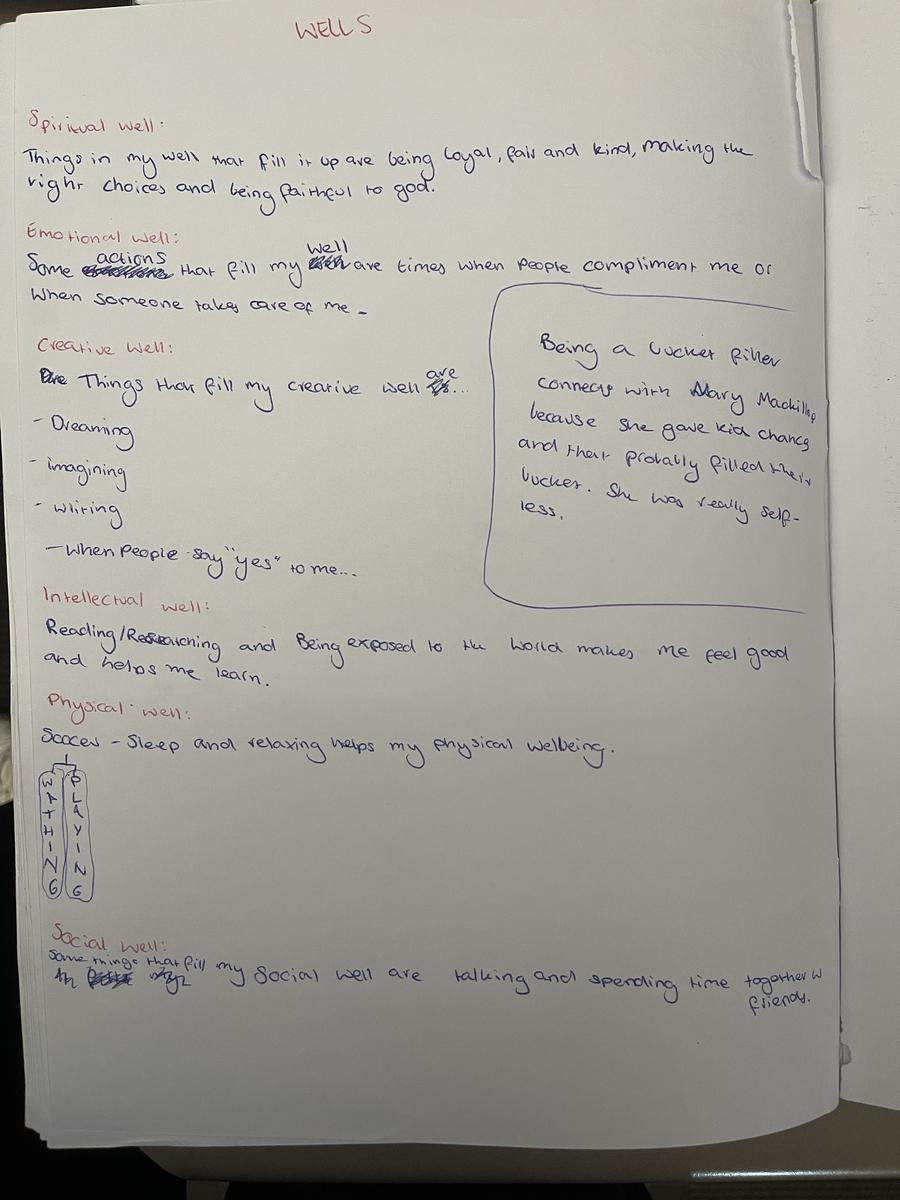 WELLS
Spiritual well:
Things in my well that fill it up are being loyal, fair and kind, making the
right choices and being faithful to god.
Emotional well:
Some actions that fill my well are times when people compliment me or
when someone takes care of me.
Creative well:
Things that fill my creative well are...
- Dreaming
- imagining
- writing
- When people say "yes" to me...
Being a bucket filler
connects with Mary Mackillop
because she gave kid chances
and that probably filled their
bucket. She was really self-
less.
Intellectual well:
Reading/Researching and Being exposed to the world makes me feel good
and helps me learn.
Physical well:
Soccer - Sleep and relaxing helps my physical welbeing.
WATHING
PLAYING
Social well:
Some things that fill
my Social well are talking and spending time together w
friends.